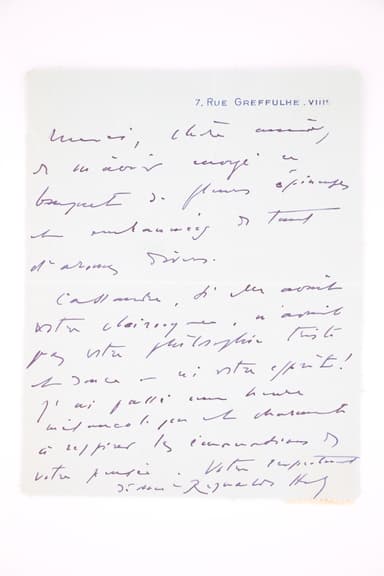 7, RUE GREFFULHE. VIIIᵉ
Merci, chère amie,
de m'avoir envoyé ce
bouquet de fleurs épineuses
et embaumées de tant
d'aromes divers.
Cassandre, si elle avait
votre clairvoyance, n'avait
pas votre philosophie triste
et douce – ni votre esprit!
J'ai passé une heure
mélancolique et charmante
à respirer les émanations de
votre pensée. Votre
Reynaldo Hahn